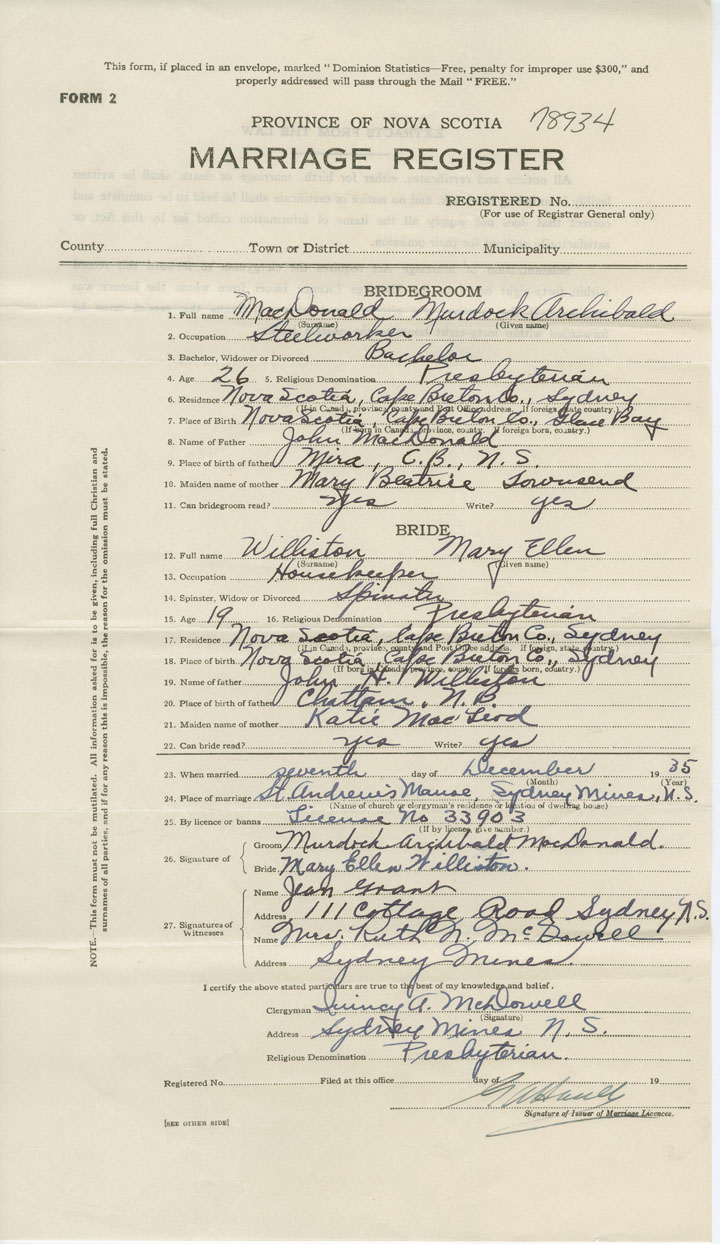 This form, if placed in an envelope, marked "Dominion Statistics—Free, penalty for improper use $300," and
properly addressed will pass through the Mail "FREE."
FORM 2
PROVINCE OF NOVA SCOTIA 78934
MARRIAGE REGISTER
REGISTERED No.
(For use of Registrar General only)
County Town or District Municipality
BRIDEGROOM
1. Full name MacDonald Murdock Archibald
(Surname) (Given name)
2. Occupation Steelworker
3. Bachelor, Widower or Divorced Bachelor
4. Age 26 5. Religious Denomination Presbyterian
6. Residence Nova Scotia, Cape Breton Co., Sydney
(If in Canada, province, county and Post Office address. If foreign state country.)
7. Place of Birth Nova Scotia, Cape Breton Co., Glace Bay
(If born in Canada, province, county. If foreign born, country.)
8. Name of Father John MacDonald
9. Place of birth of father Mira, C.B., N.S.
10. Maiden name of mother Mary Beatrice Townsend
11. Can bridegroom read? yes Write? yes
BRIDE
12. Full name Williston Mary Ellen
(Surname) (Given name)
13. Occupation Housekeeper
14. Spinster, Widow or Divorced Spinster
15. Age 19 16. Religious Denomination Presbyterian
17. Residence Nova Scotia, Cape Breton Co., Sydney
(If in Canada, province, county and Post Office address. If foreign, state country.)
18. Place of birth Nova Scotia, Cape Breton Co., Sydney
(If born in Canada, province, county. If foreign born, country.)
19. Name of father John H. Williston
20. Place of birth of father Chattam, N.B.
21. Maiden name of mother Katie MacLeod
22. Can bride read? yes Write? yes
23. When married seventh day of December 1935
(Month) (Year)
24. Place of marriage St Andrew's Manse, Sydney Mines, N.S.
(Name of church or clergyman's residence or location of dwelling house)
25. By licence or banns License No 33903
(If by licence, give number.)
26. Signature of
Groom Murdock Archibald MacDonald.
Bride Mary Ellen Williston.
27. Signatures of Witnesses
Name Jean Grant
Address 111 Cottage Road Sydney N.S.
Name Mrs. Ruth N. McDowell
Address Sydney Mines
I certify the above stated particulars are true to the best of my knowledge and belief.
Clergyman Quincy A. McDowell
(Signature)
Address Sydney Mines N.S.
Religious Denomination Presbyterian.
Registered No. Filed at this office day of 19
Signature of Issuer of Marriage Licences.
[SEE OTHER SIDE]
NOTE.—This form must not be mutilated. All information asked for is to be given, including full Christian and
surnames of all parties, and if for any reason this is impossible, the reason for the omission must be stated.